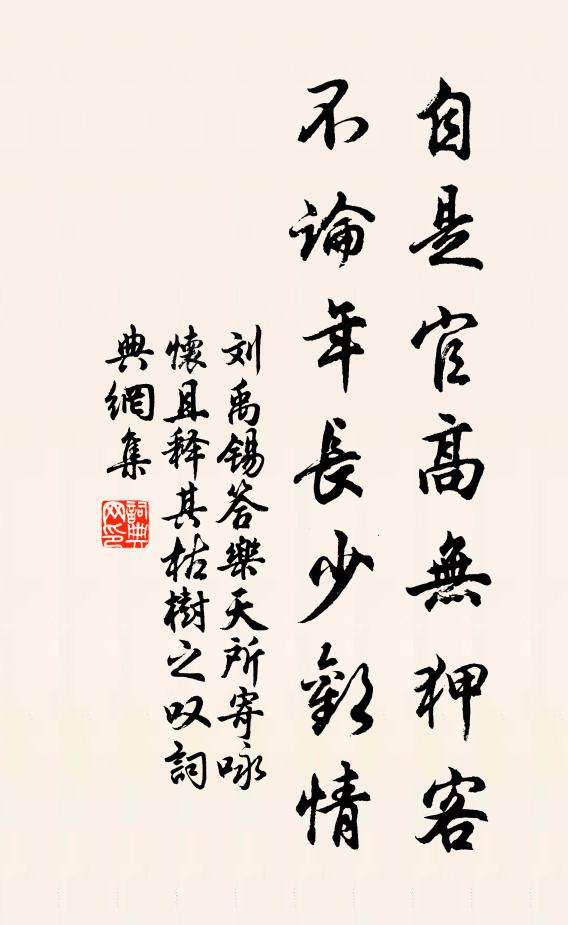 自是官高無狎客
不論年長少歡情
刘禹锡答樂天所寄咏
懷且释其枯樹之叹詞
典網集
詞典網印